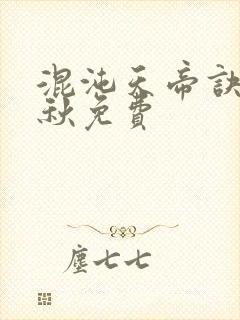 混沌天帝訣
秋免費
塵七七